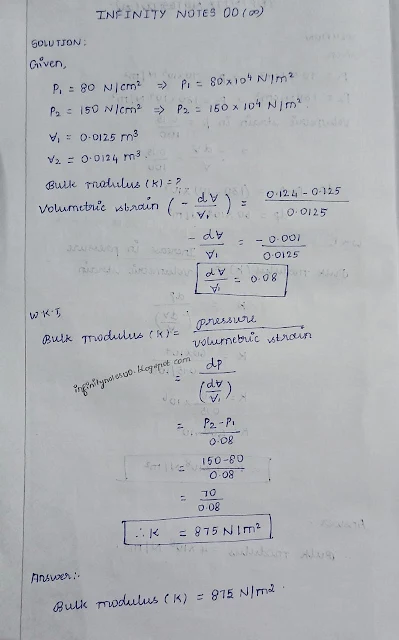 INFINITY NOTES OO (∞)
SOLUTION:
Given,
P₁ = 80 N/cm² ⇒ P₁ = 80×10⁴ N/m²
P₂ = 150 N/cm² ⇒ P₂ = 150×10⁴ N/m²
∀₁ = 0.0125 m³
∀₂ = 0.0124 m³.
Bulk modulus (K) = ?
Volumetric strain (- d∀/∀₁) = 0.124 - 0.125 / 0.0125
- d∀/∀₁ = - 0.001 / 0.0125
d∀/∀₁ = 0.08
W.K.T,
Bulk modulus (K) = pressure / volumetric strain
infinitynotesoo.blogspot.com
= dp / (d∀/∀₁)
= P₂-P₁ / 0.08
= 150-80 / 0.08
= 70 / 0.08
∴ K = 875 N/m²
Answer:-
Bulk modulus (K) = 875 N/m².